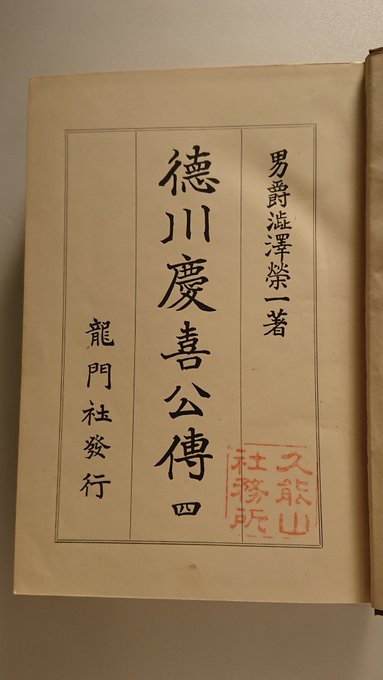 男爵澁澤榮一著
德川慶喜公傳 四
龍門社發行
久能山
社務所